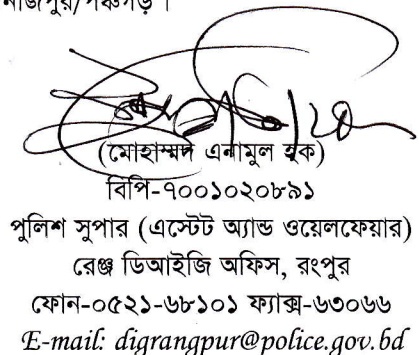 নাজপুর/পঞ্চগড় ।
(মোহাম্মদ এনামুল হক)
বিপি-৭০০১০২০৮৯১
পুলিশ সুপার (এস্টেট অ্যান্ড ওয়েলফেয়ার)
রেঞ্জ ডিআইজি অফিস, রংপুর
ফোন-০৫২১-৬৮১০১ ফ্যাক্স-৬৩০৬৬
E-mail: digrangpur@police.gov.bd